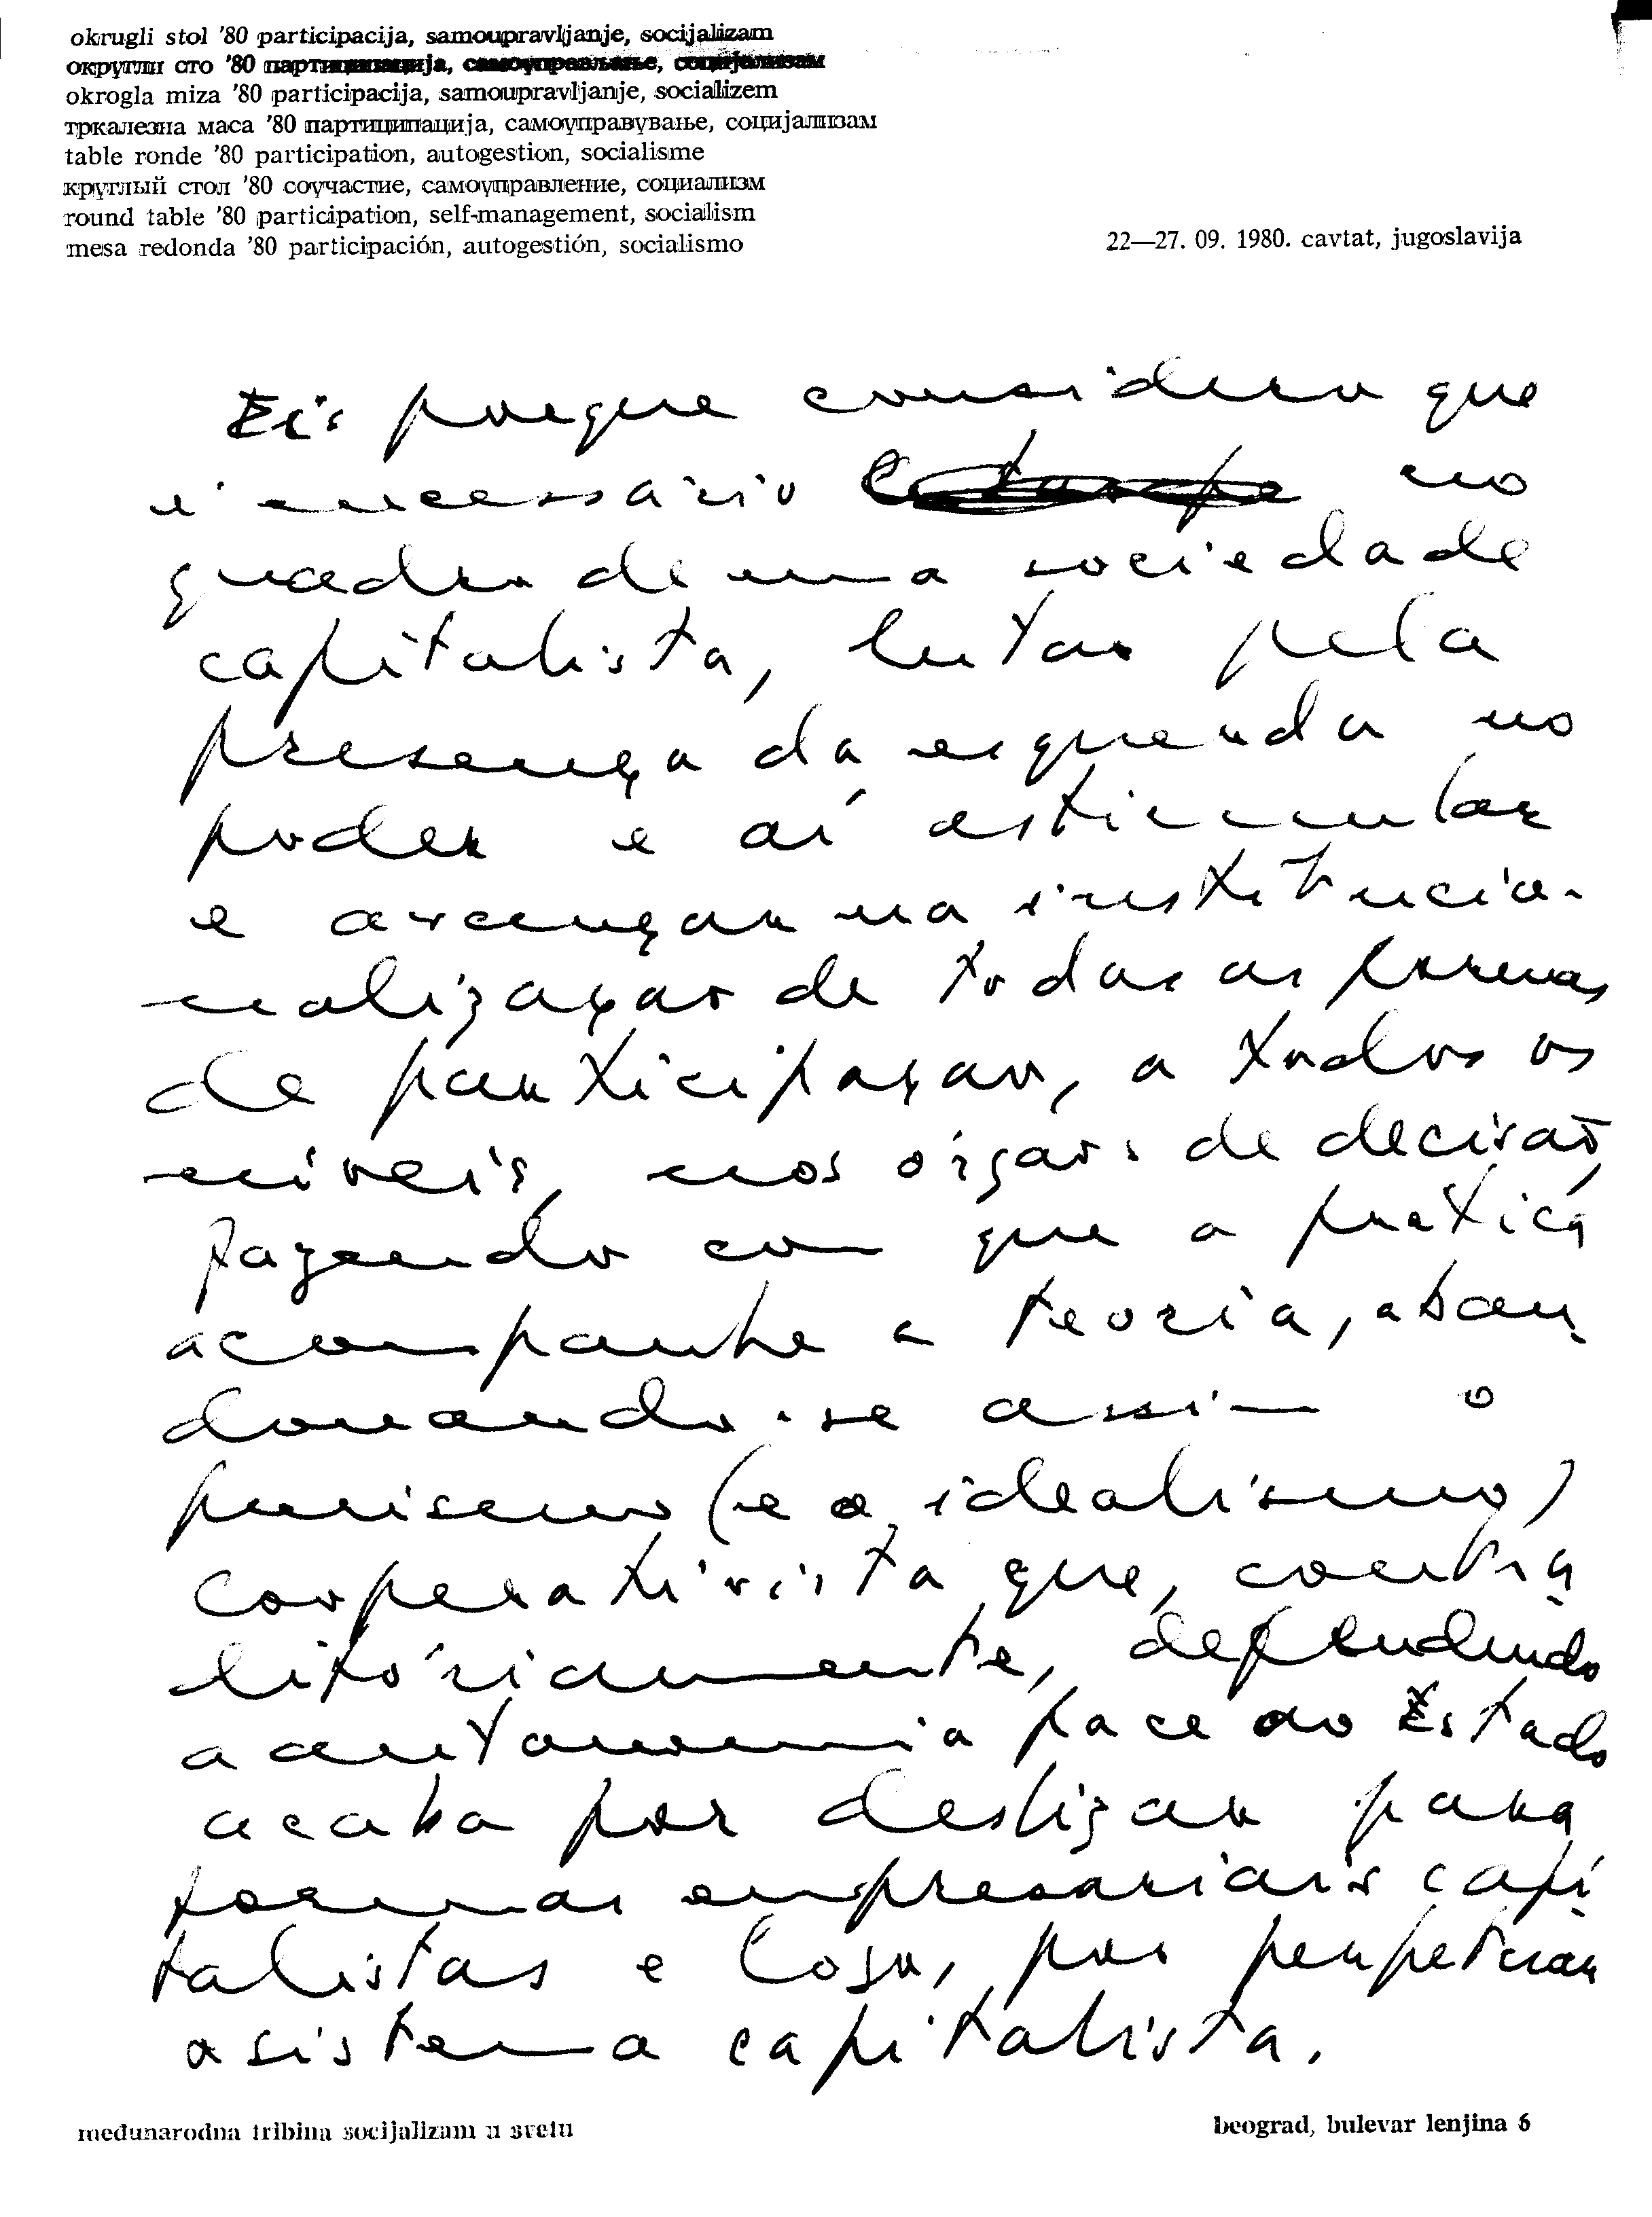 okrugli stol '80 participacija, samoupravljanje, socijalizam
округли сто '80 партиципација, самоуправљање, социјализам
okrogla miza '80 participacija, samoupravljanje, socializem
тркалезна маса '80 партиципација, самоуправување, социјализам
table ronde '80 participation, autogestion, socialisme
круглый стол '80 соучастие, самоуправление, социализм
round table '80 participation, self-management, socialism
mesa redonda '80 participación, autogestión, socialismo
22—27. 09. 1980. cavtat, jugoslavija
Eis porque considero que
é necessário no
quadro de uma sociedade
capitalista, lutar pela
presença da esquerda no
poder e aí estimular
e avançar na institucio-
nalização de todas as formas
de participação, a todos os
níveis, nos órgãos de decisão,
fazendo com que a prática
acompanhe a teoria, aban
donando-se assim o
purismo (e o idealismo)
cooperativista que, contra
ditóriamente, defendendo
a autonomia face ao Estado
acaba por deslizar para
formas empresariais capi
talistas e logo, por perpetuar
o sistema capitalista.
međunarodna tribina socijalizam u svetu
beograd, bulevar lenjina 6